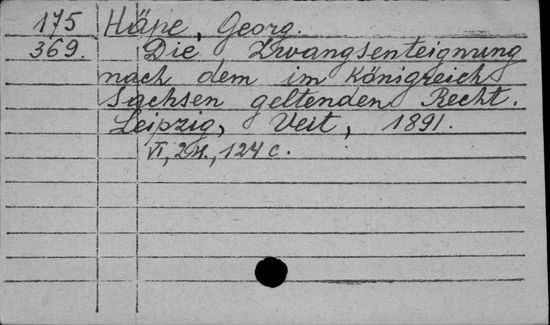 175 Häpe, Georg.
369. Die Zwangsenteignung
nach dem im Königreich
Sachsen geltenden Recht.
Leipzig, Veit, 1891.
VI, 2 н., 124 с.